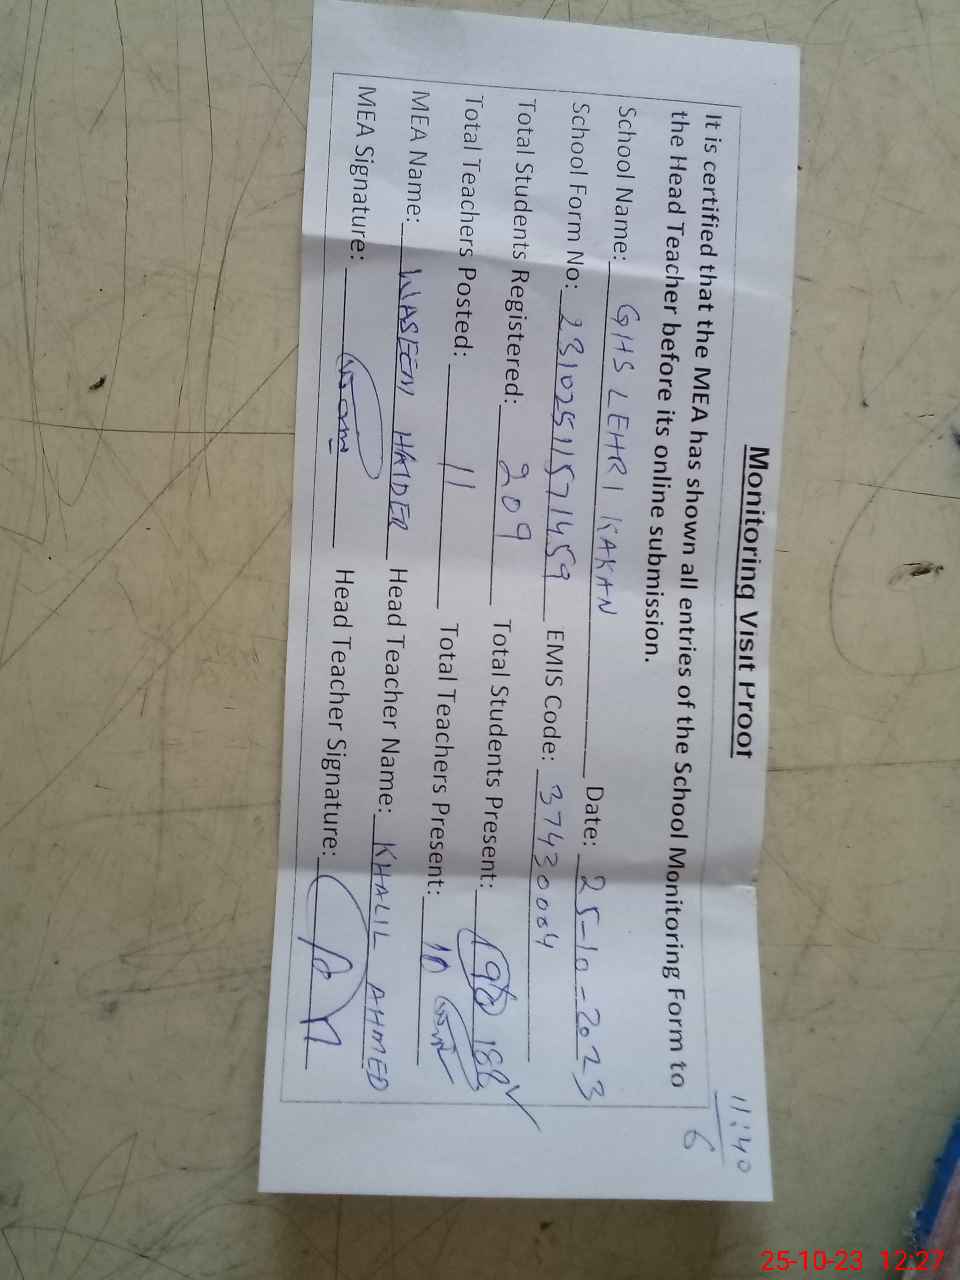 11:40
6
Monitoring Visit Proof
It is certified that the MEA has shown all entries of the School Monitoring Form to
the Head Teacher before its online submission.
School Name: GHS LEHRI KAKAN Date: 25-10-2023
School Form No: 23102511571459 EMIS Code: 37430004
Total Students Registered: 209 Total Students Present: 190 188
Total Teachers Posted: 11 Total Teachers Present: 10
MEA Name: WASEEM HAIDER Head Teacher Name: KHALIL AHMED
MEA Signature: Head Teacher Signature:
25-10-23 12:27